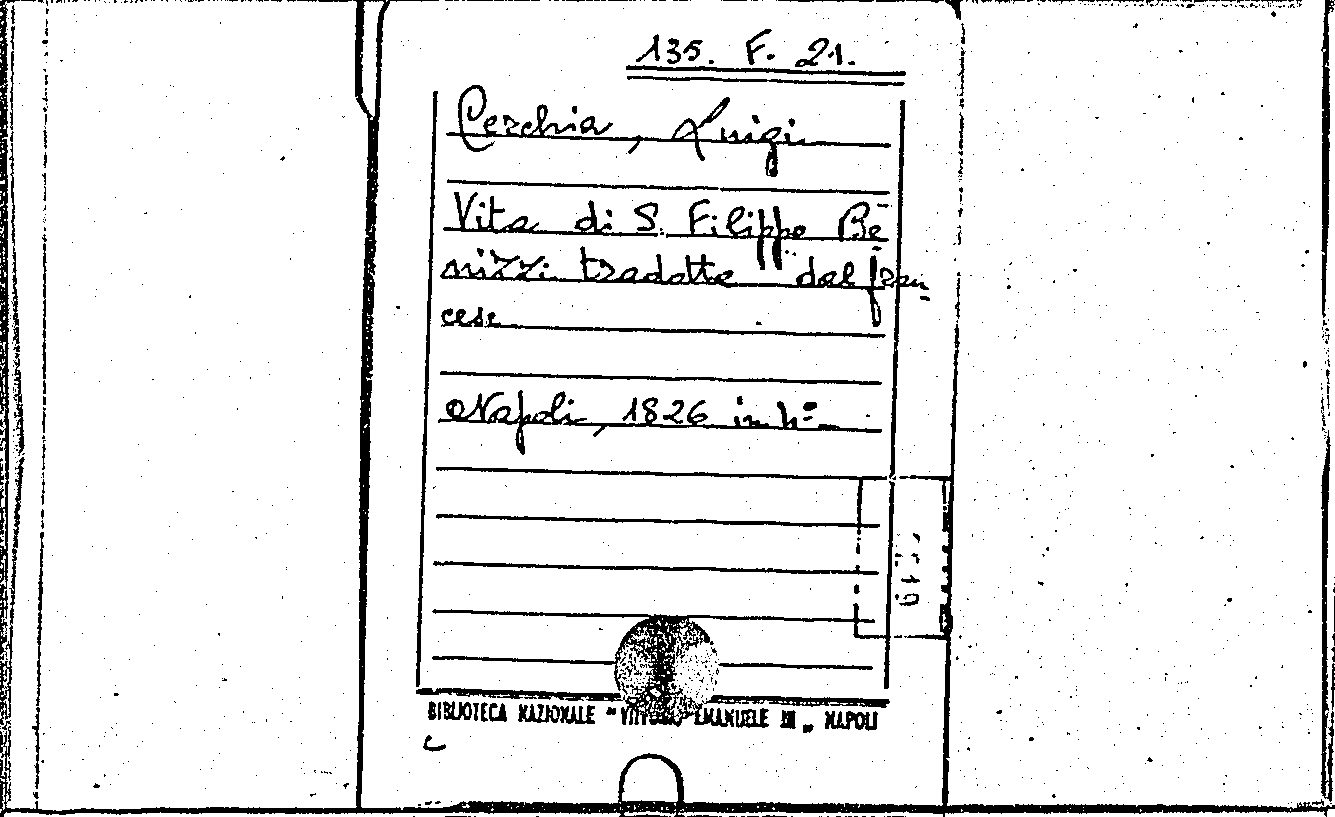 135. F. 21.
Cerchia, Luigi
Vita di S. Filippo Be
nizzi tradotta dal fran
cese
Napoli, 1826 in 4°
BIBLIOTECA NAZIONALE "VITTORIO EMANUELE III" NAPOLI